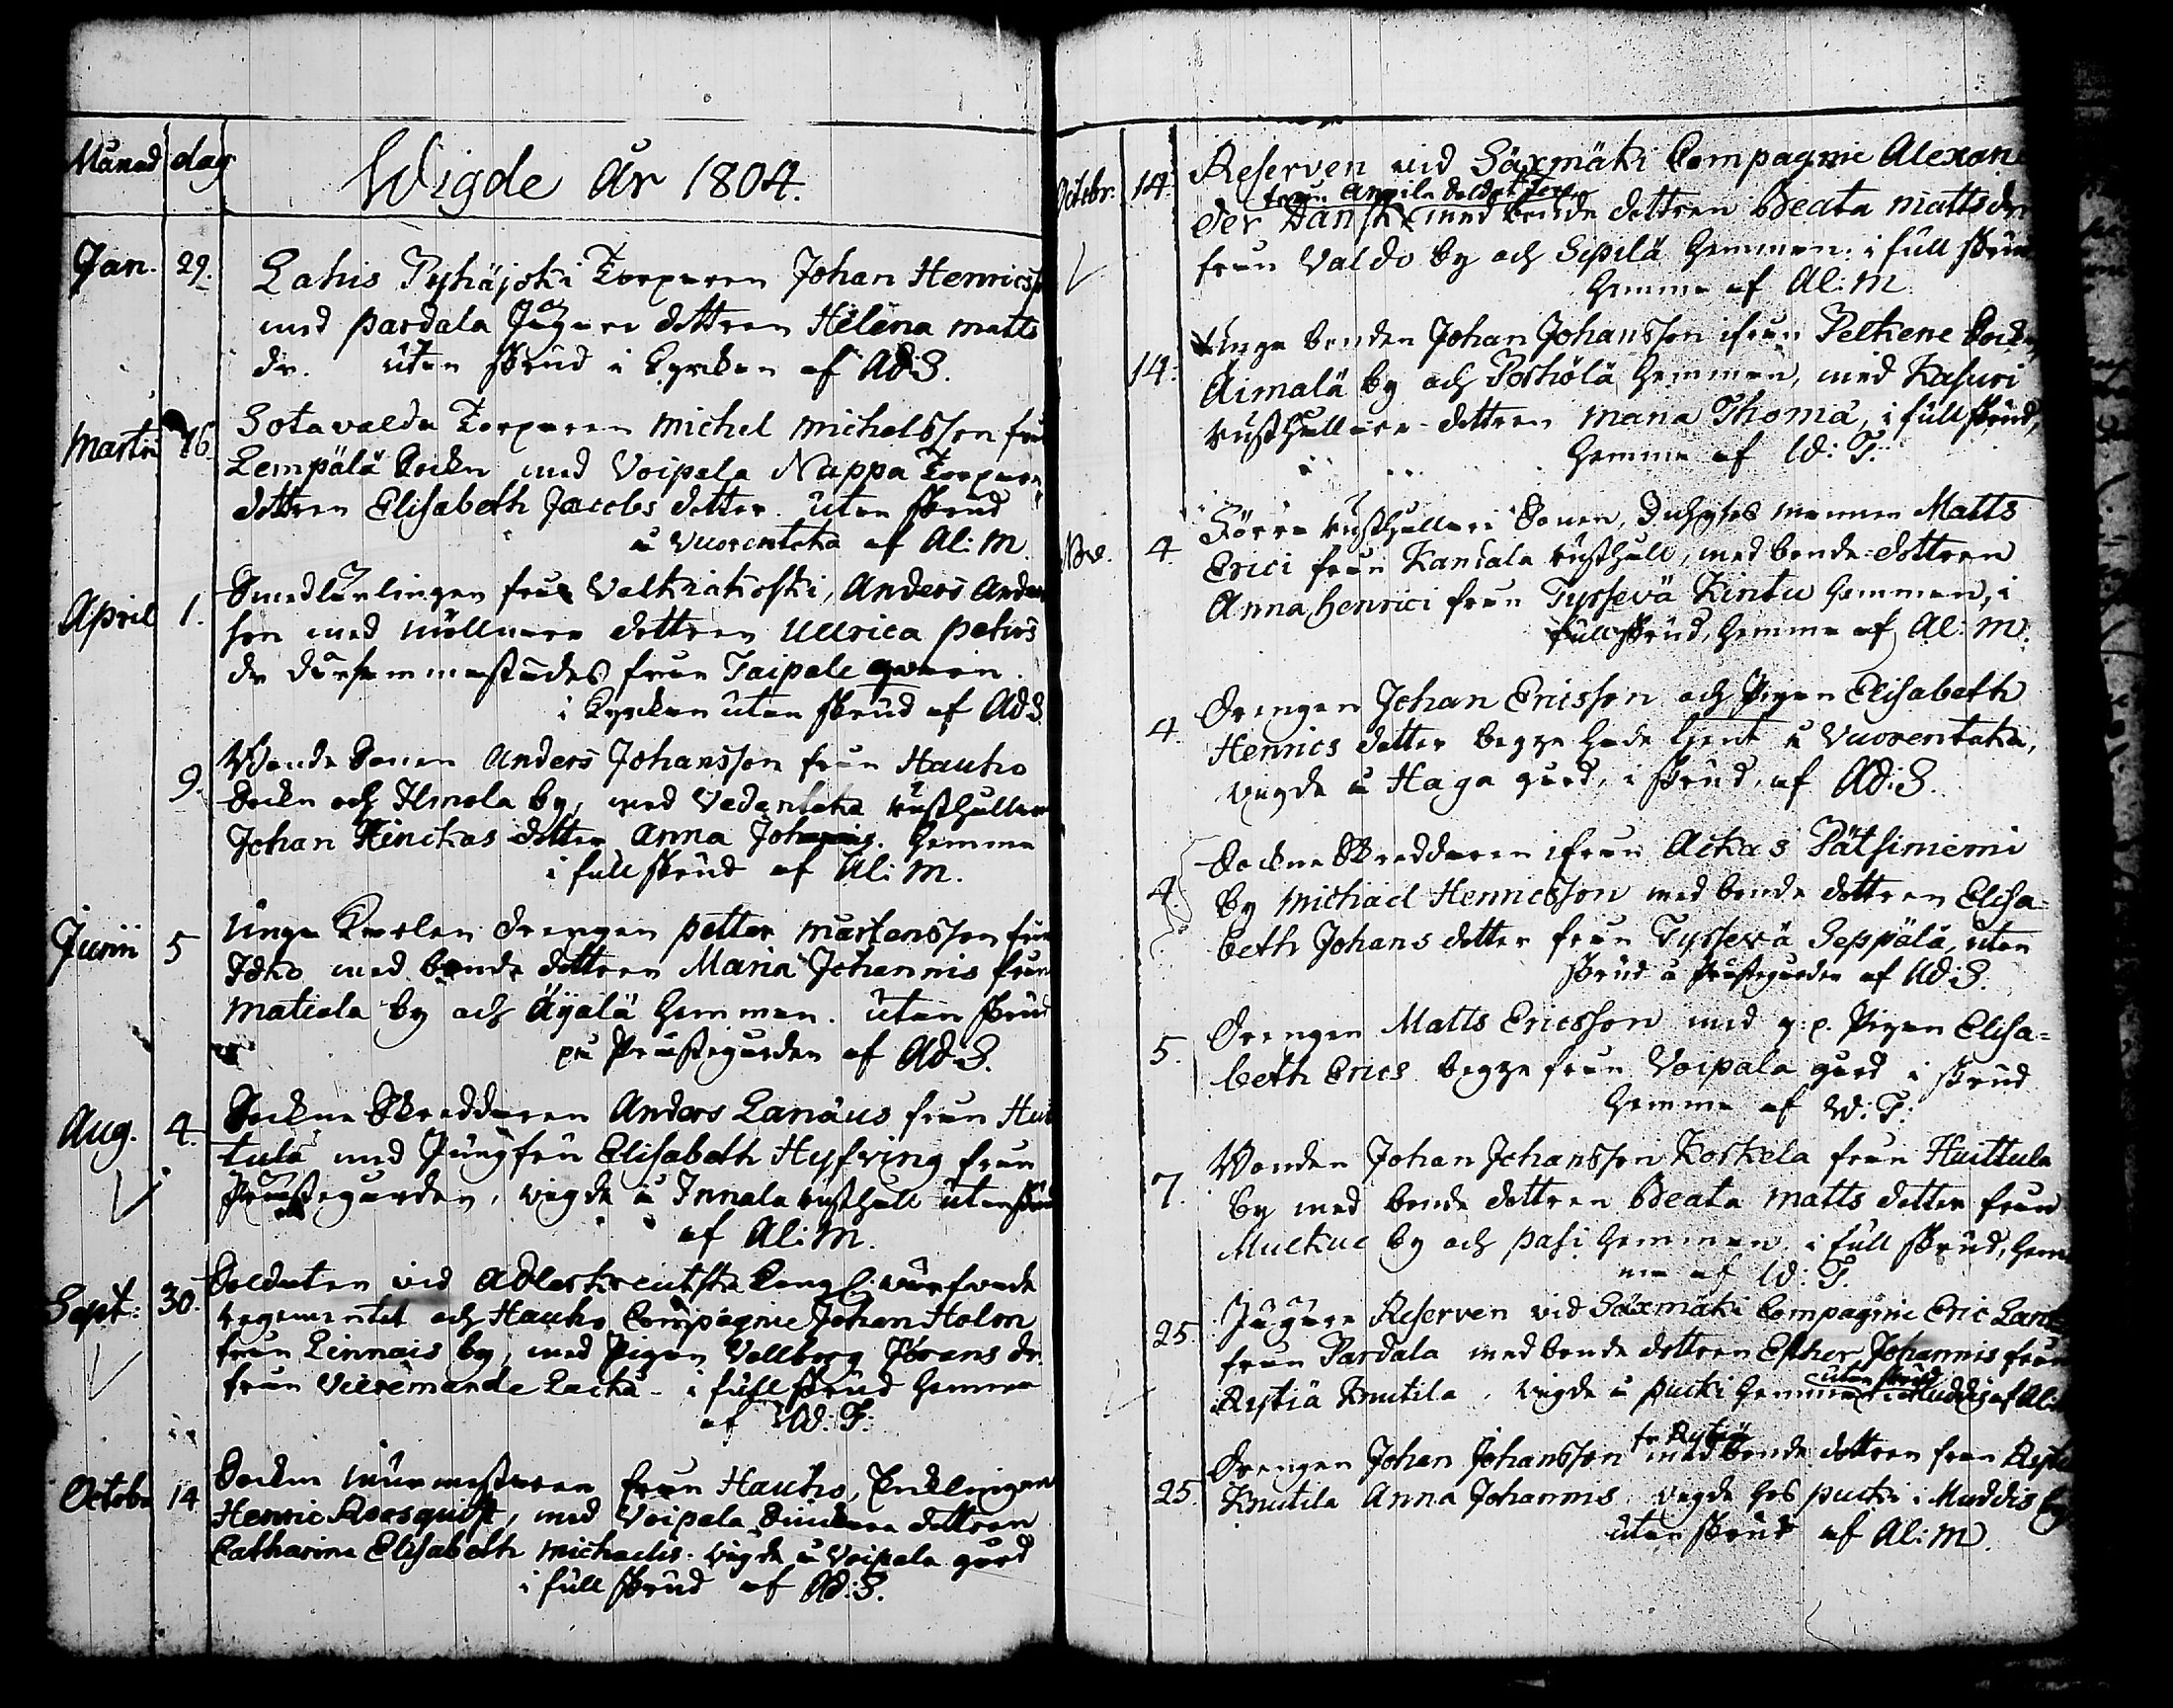 Månad dag
Wigde År 1804.
Jan. 29. Lahis Pyhäjoki Torparen Johan Henricss
med Pardala Jägare dottren Helena Matts
dr. utan skrud i Kyrckan af Ad:S.
Martii 16. Sotavalda Torparen Michel Michelsson från
Lempälä Sockn med Voipala Nappa Torpare
dottren Elisabeth Jacobs dotter. utan skrud
å Vuorentaka af Al: M.
April 1. Smedlärlingen från Valkiakoski, Anders Anders
son med Mölnare dottren Ullrica Pehrs
dr därsammastädes från Taipale qvarn.
i Kyrckan utan skrud af Ad S.
9. Bonde Sonen Anders Johansson från Hauho
Sockn och Ilmola by, med Vedentaka Rusthållare
Johan Kinckas dotter Anna Johannis. Hemma
i full skrud af Al: M.
Junii 5 Unga Karlen drengen Petter Mårtensson från
Idho med bonde dottren Maria Johannis från
Matiala by och Äijälä Hemman. utan skrud
på Prästegården af Ad:S.
Aug. 4. Sockne Skreddaren Anders Lanäus från Huit
tula med Jungfru Elisabeth Hyfving från
Prästegården, vigde å Innala rusthåll utan skrud
af Al: M.
Sept: 30. Soldaten vid Adlerkreutzka värfvade
regementet och Hauho Compagnie Johan Holm
från Linnais by, med Pigan Vallborg Jörans dr.
från Vieremande Lacka - i full skrud hemma
af W: T:
Octobr 14 Sockn Murmästaren från Hauho, Encklingen
Henric Roosquist, med Voipala dottren
Catharina Elisabeth Michaelis. vigde å Voipala gård
i full skrud af Ad:S.
Octobr. 14. Reserven vid Säxmäki Compagnie Alexan
från
der Dansk med bonde dottren Beata Mattsdr
från Valdo by och Sipilä Hemman. i full skrud
hemma af Al: M.
14: Unga bonden Johan Johansson ifrån Pelkene Sockn
Äimälä by och Poshölä Hemman, med Kasuri
rusthållare-dottren Maria Thomä, i full skrud,
hemma af W: T:
Nov. 4. Förra rusthållare Sonen, Inhyses mannen Matts
Erici från Kantala rusthåll, med bonde-dottren
Anna Henrici från Tyrsevä Kintu Hemman, i
full skrud, hemma af Al: M.
4. Drengen Johan Ericsson och Pigan Elisabeth
Henrics dotter begge hade tjent å Vuorentaka,
vigde å Haga gård, i skrud, af Ad:S.
4. Sockne Skreddaren ifrån Ackas Pätsiniemi
by Michael Henricsson med bonde dottren Elisa=
beth Johans dotter från Tyrsevä Seppälä, utan
skrud å Prästegården af Ad:S.
5. Drengen Matts Ericsson med q: p. Pigan Elisa=
beth Erics begge från Voipala gård i skrud
hemma af W: T:
7. Bonden Johan Johansson Koskela från Huittula
by med bonde dottren Beata Matts dotter från
Muckue by och Pasi Hemman. i full skrud, hem
ma af W: T.
25. Jägare Reserven vid Säxmäki Compagnie Eric
från Pardala med bonde dottren Esther Johannis från
utan skrud
Rytiä Knutila. vigde å Pucki Hemman i Muddis af Al:
fr Rytiä
25. Drengen Johan Johansson med bonde dottren från
Knutila Anna Johannis, vigde hos Pucki i Muddis by
utan skrud af Al: M.